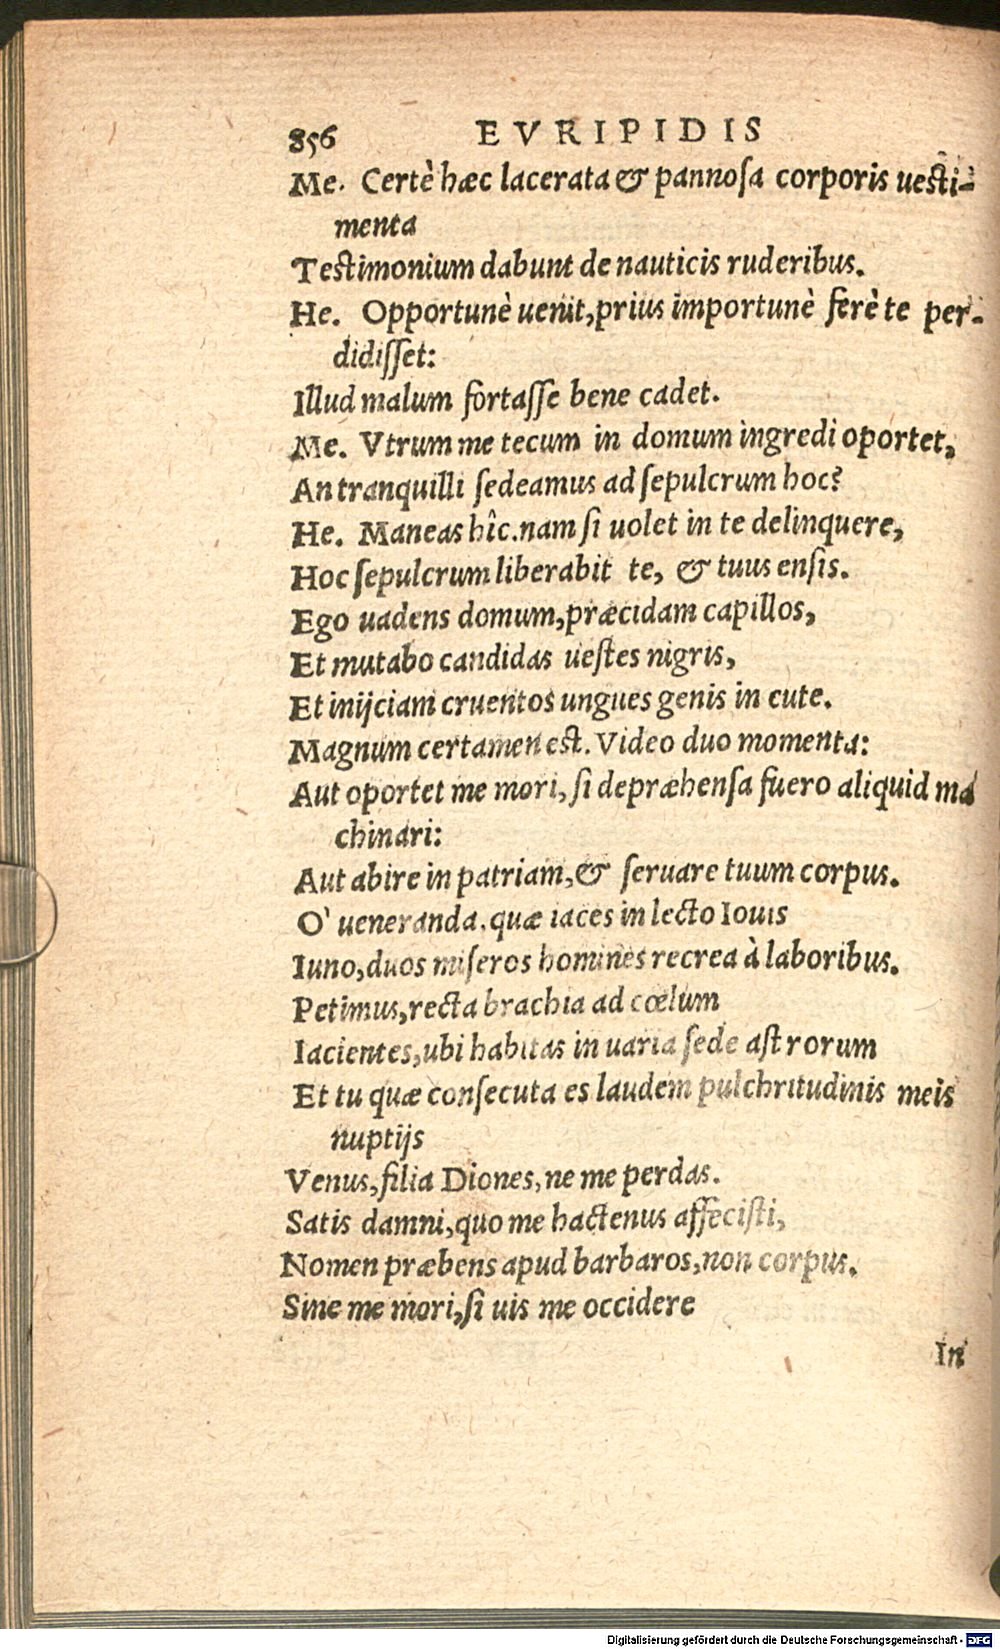 856 EVRIPIDIS
Me. Certè hæc lacerata & pannosa corporis uesti-
menta
Testimonium dabunt de nauticis ruderibus.
He. Opportunè uenit, prius importunè ferè te per-
didisset:
Illud malum fortasse bene cadet.
Me. Vtrum me tecum in domum ingredi oportet,
An tranquilli sedeamus ad sepulcrum hoc?
He. Maneas hîc. nam si uolet in te delinquere,
Hoc sepulcrum liberabit te, & tuus ensis.
Ego uadens domum, præcidam capillos,
Et mutabo candidas uestes nigris,
Et inijciam cruentos ungues genis in cute.
Magnum certamen est. Video duo momenta:
Aut oportet me mori, si depræhensa fuero aliquid ma
chinari:
Aut abire in patriam, & seruare tuum corpus.
O' ueneranda. quæ iaces in lecto Iouis
Iuno, duos miseros homines recrea à laboribus.
Petimus, recta brachia ad cœlum
Iacientes, ubi habitas in uaria sede astrorum
Et tu quæ consecuta es laudem pulchritudinis meis
nuptijs
Venus, filia Diones, ne me perdas.
Satis damni, quo me hactenus affecisti,
Nomen præbens apud barbaros, non corpus.
Sine me mori, si uis me occidere
In
Digitalisierung gefördert durch die Deutsche Forschungsgemeinschaft - DFG